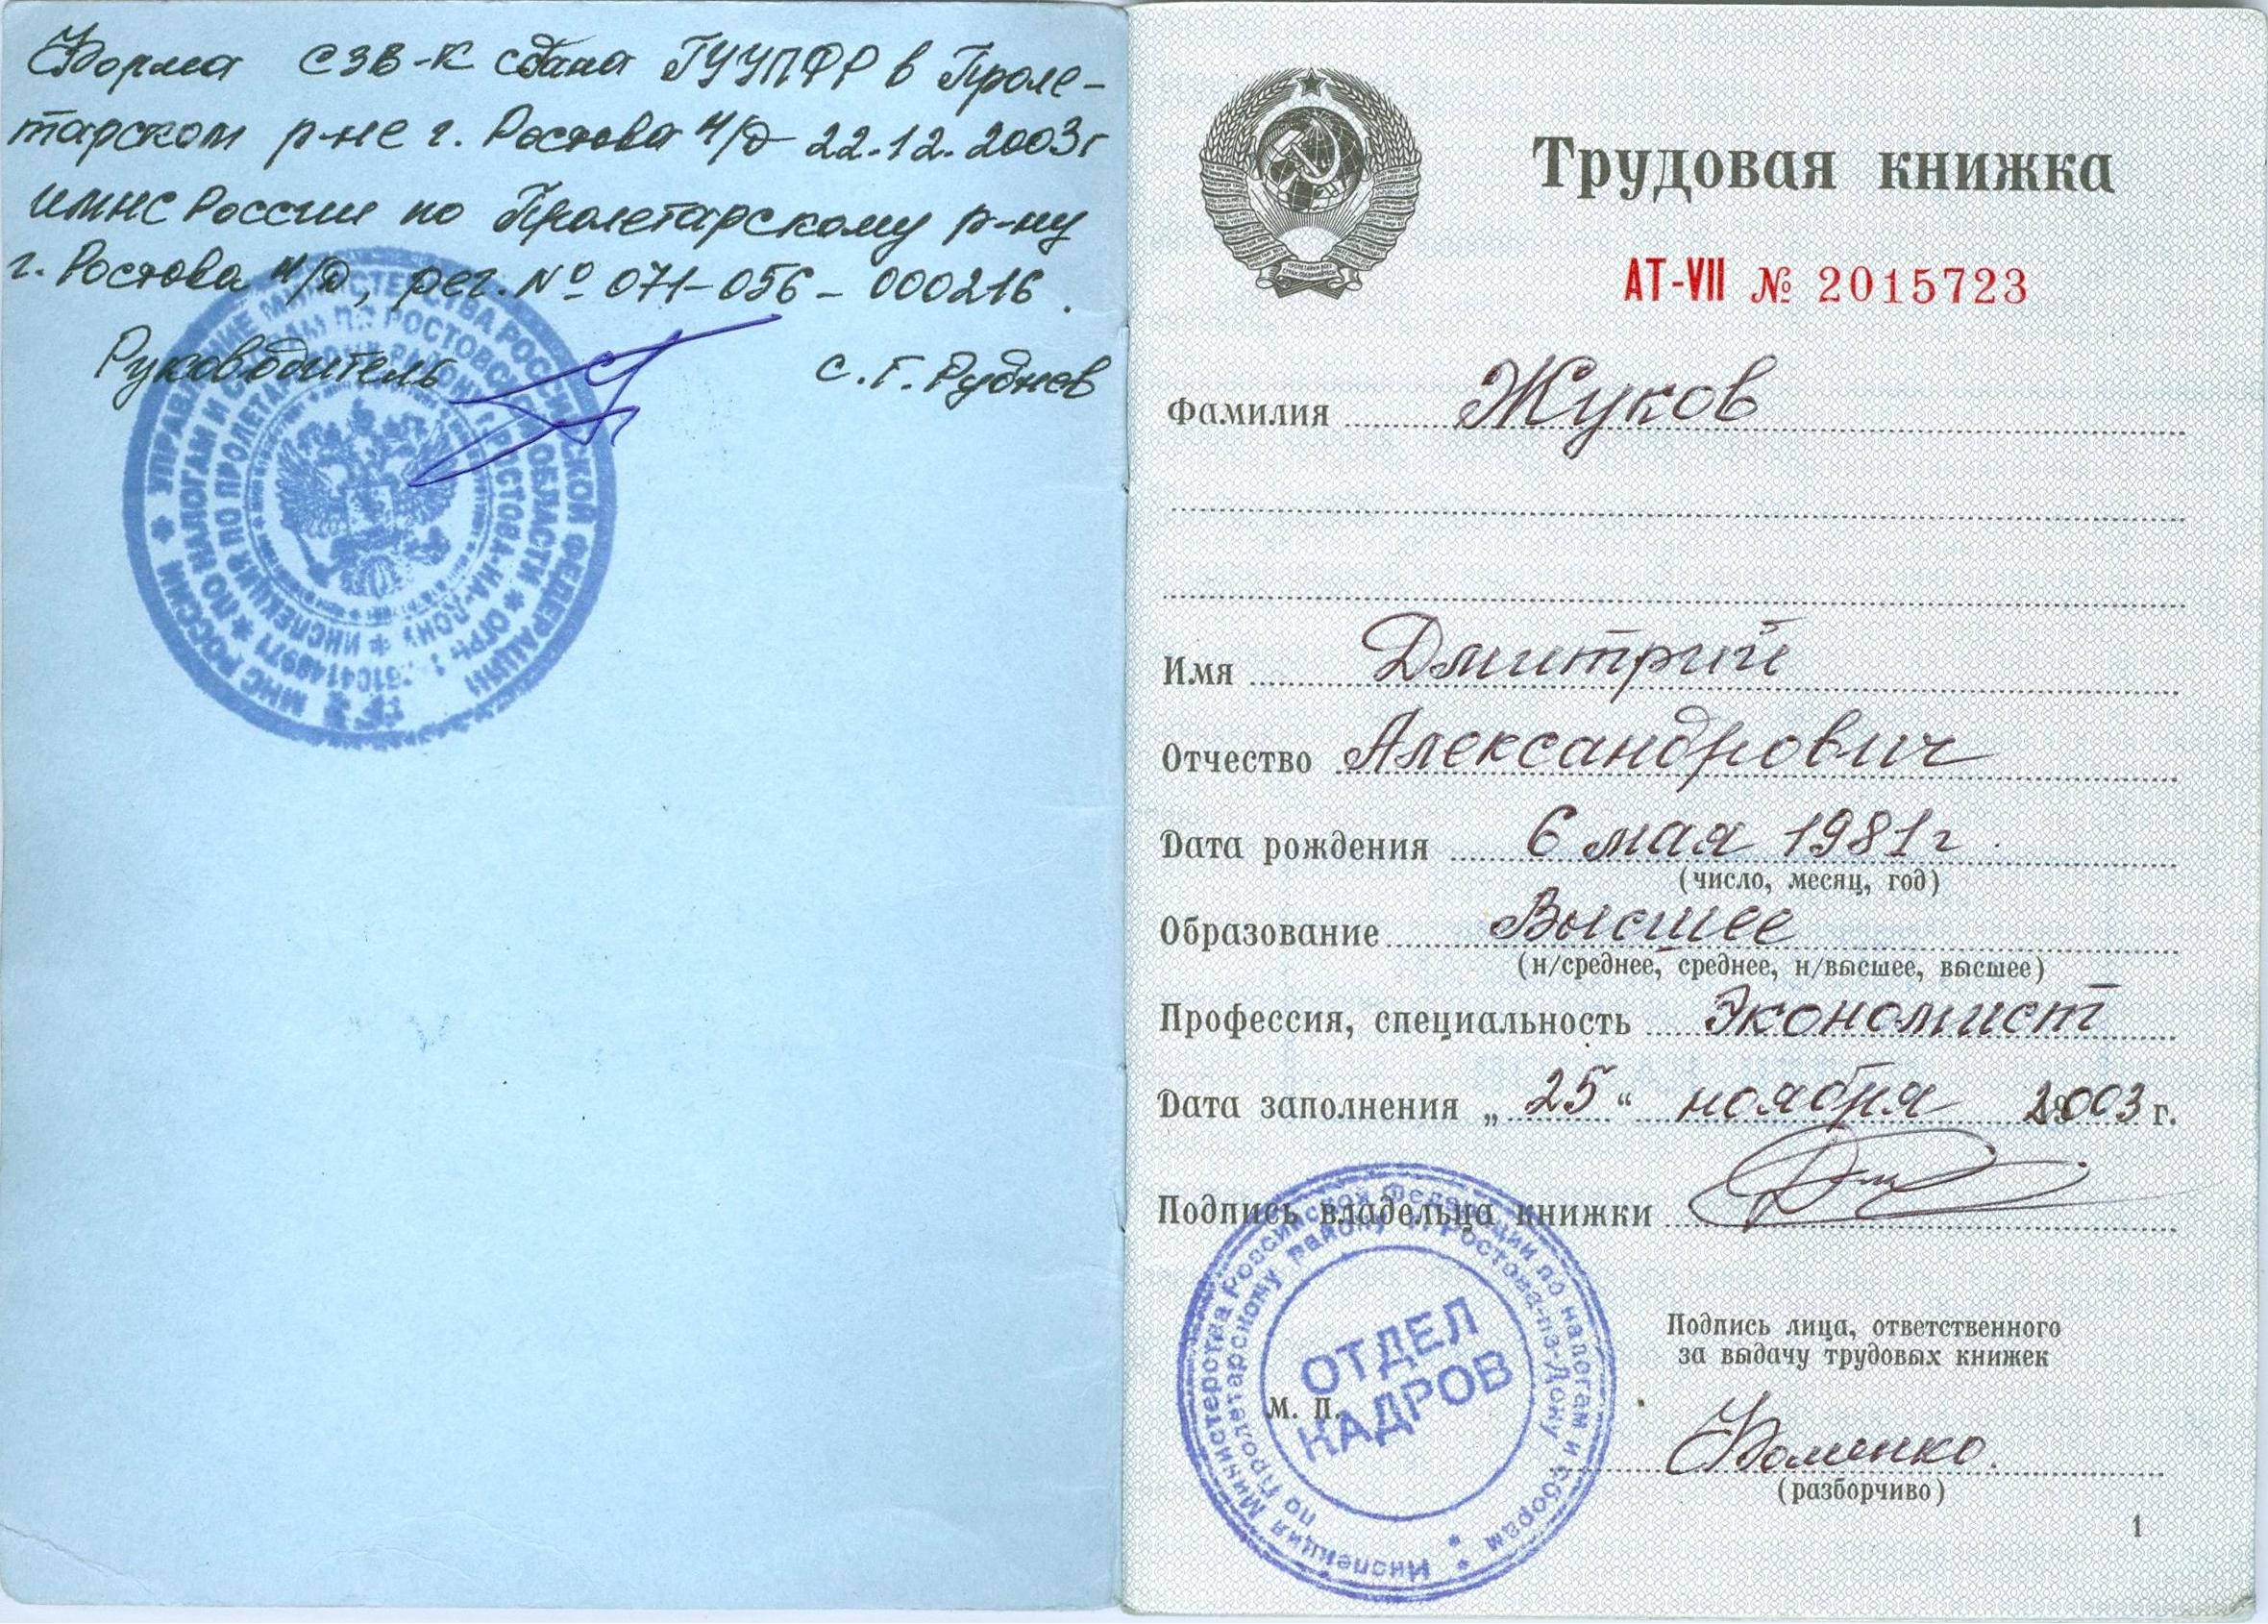 Форма СЗВ-К сдана ГУУПФР в Проле-
тарском р-не г. Ростова н/Д 22.12.2003г
ИМНС России по Пролетарскому р-ну
г. Ростова н/Д, рег. № 071-056-000216.
Руководитель С.Г. Руднев
УПРАВЛЕНИЕ МИНИСТЕРСТВА РОССИЙСКОЙ ФЕДЕРАЦИИ
ПО НАЛОГАМ И СБОРАМ ПО РОСТОВСКОЙ ОБЛАСТИ
ИНСПЕКЦИЯ ПО ПРОЛЕТАРСКОМУ РАЙОНУ Г. РОСТОВА-НА-ДОНУ
МНС РОССИИ
Трудовая книжка
АТ-VII № 2015723
Фамилия Жуков
Имя Дмитрий
Отчество Александрович
Дата рождения 6 мая 1981г.
(число, месяц, год)
Образование Высшее
(н/среднее, среднее, н/высшее, высшее)
Профессия, специальность Экономист
Дата заполнения „25“ ноября 2003 г.
Подпись владельца книжки
Инспекция Министерства Российской Федерации по налогам и сборам
по Пролетарскому району г. Ростова-на-Дону
ОТДЕЛ
КАДРОВ
М. П.
Подпись лица, ответственного
за выдачу трудовых книжек
Фоменко.
(разборчиво)
1